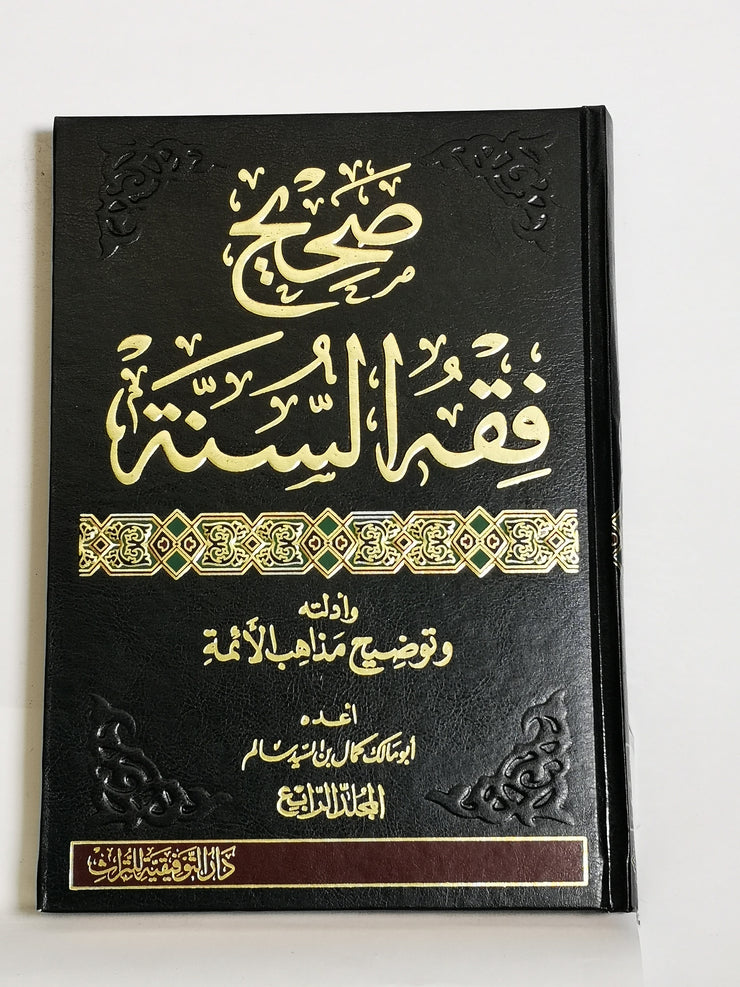 صَحِيحُ
فِقْهُ السُّنَّة
وأدلته
وتوضيح مَذاهِب الأئمة
أعده
أبو مالك كمال بن السيد سالم
المجلد الرابع
دَار التَّوفيقيَّة للتُراث